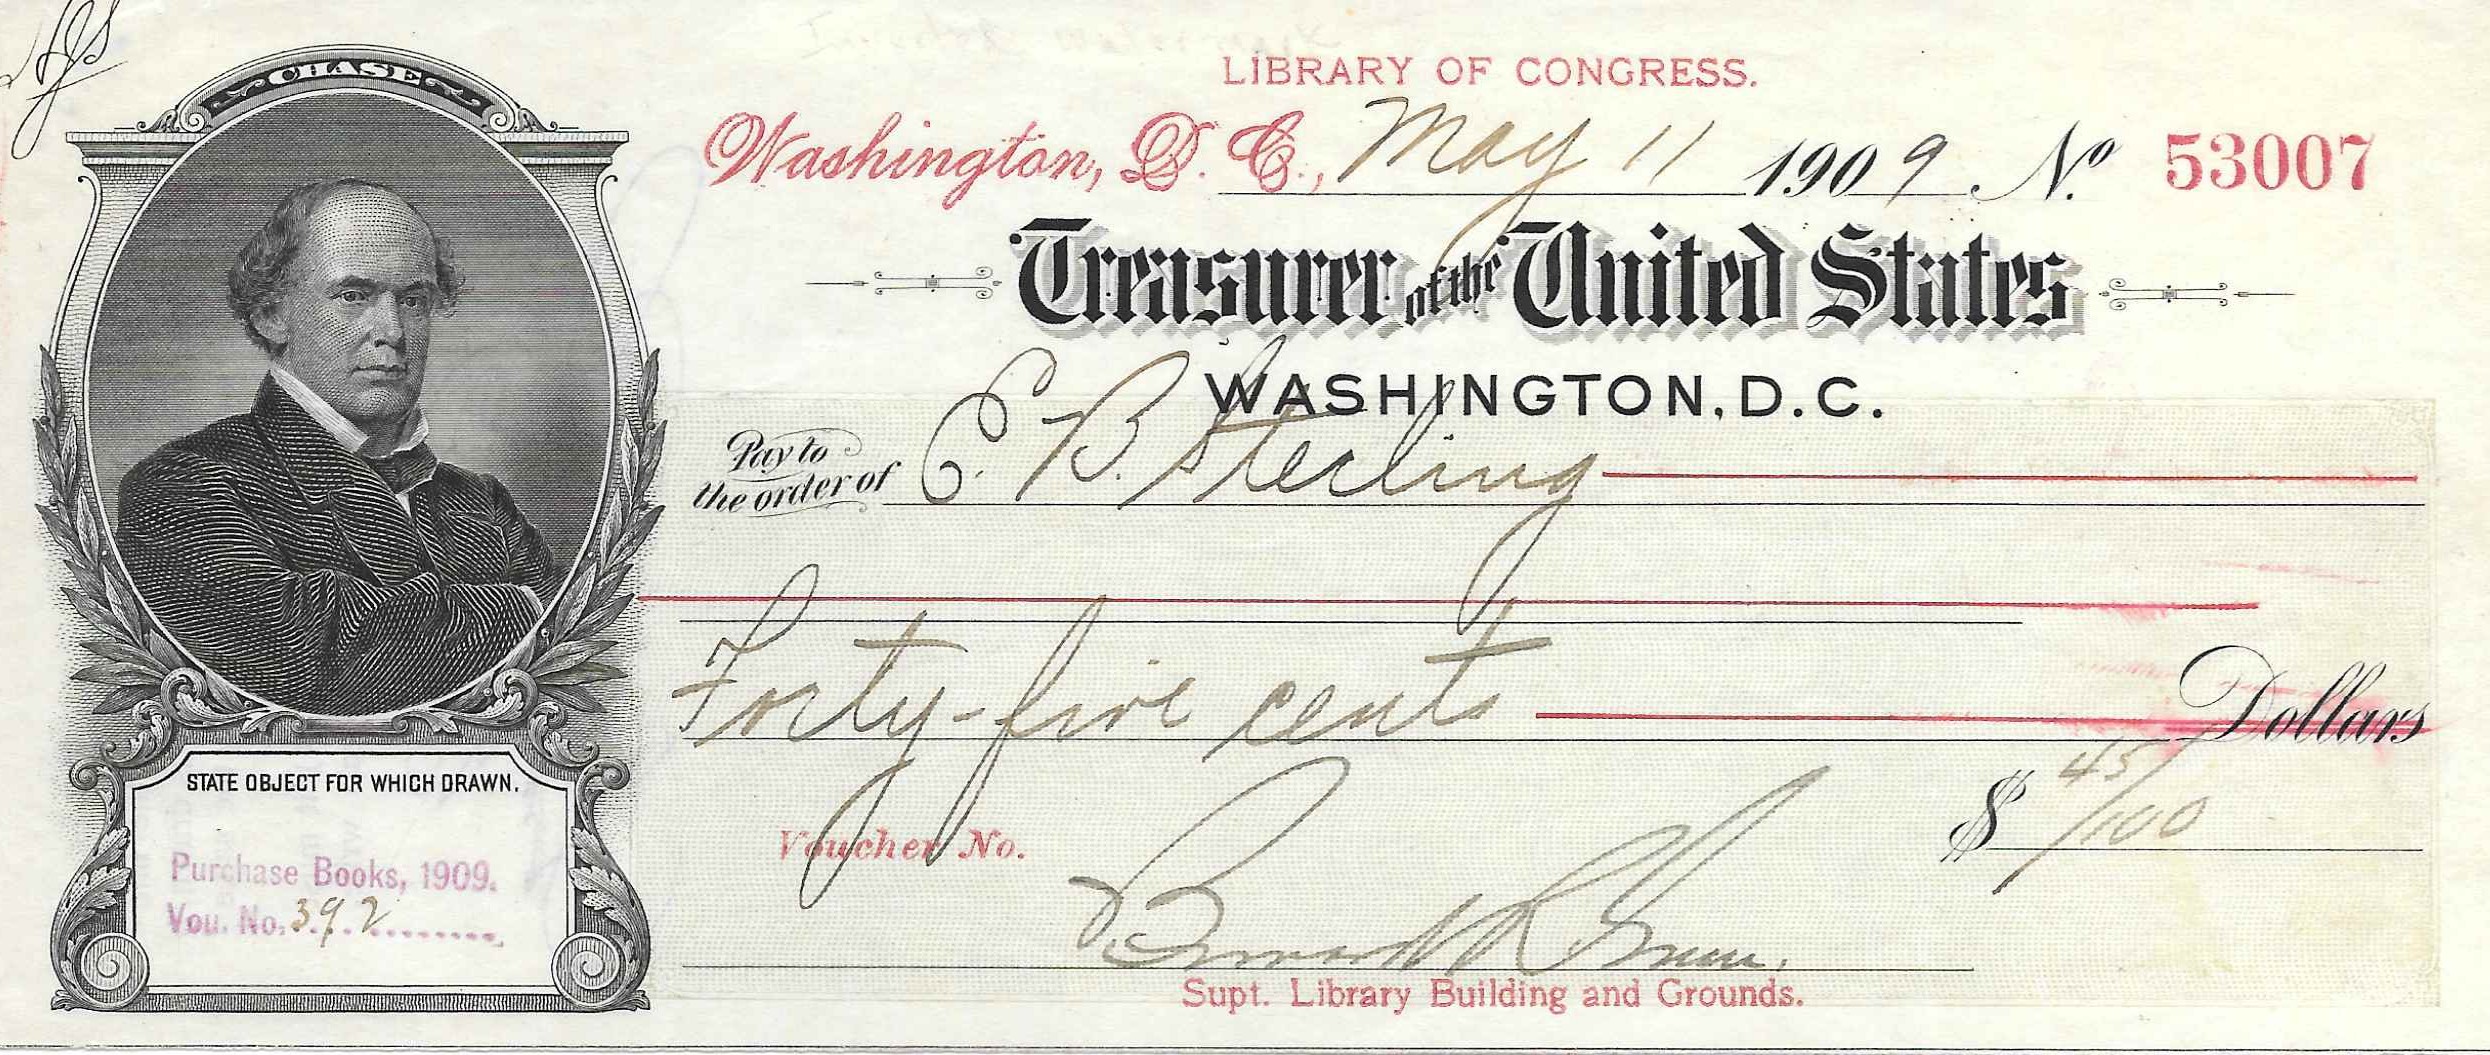 CHASE
LIBRARY OF CONGRESS.
Washington, D. C., May 11 1909 No. 53007
Treasurer of the United States
WASHINGTON, D.C.
Pay to
the order of C. B. Sterling
Forty-five cents Dollars
$ 45/100
STATE OBJECT FOR WHICH DRAWN.
Purchase Books, 1909.
Vou. No. 392
Voucher No.
Bernard R. Green.
Supt. Library Building and Grounds.